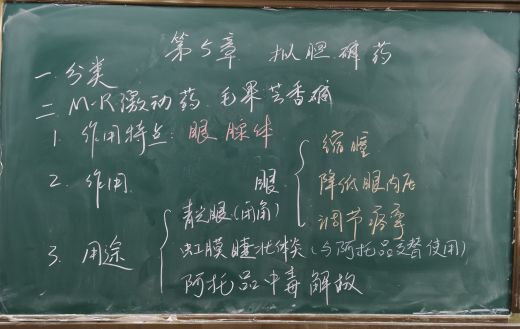 第5章 拟胆碱药
一.分类
二.M-R激动药.毛果芸香碱
1. 作用特点: 眼 腺体
2. 作用 眼
缩瞳
降低眼内压
调节痉挛
3. 用途
青光眼(闭角)
虹膜睫状体炎(与阿托品交替使用)
阿托品中毒解救